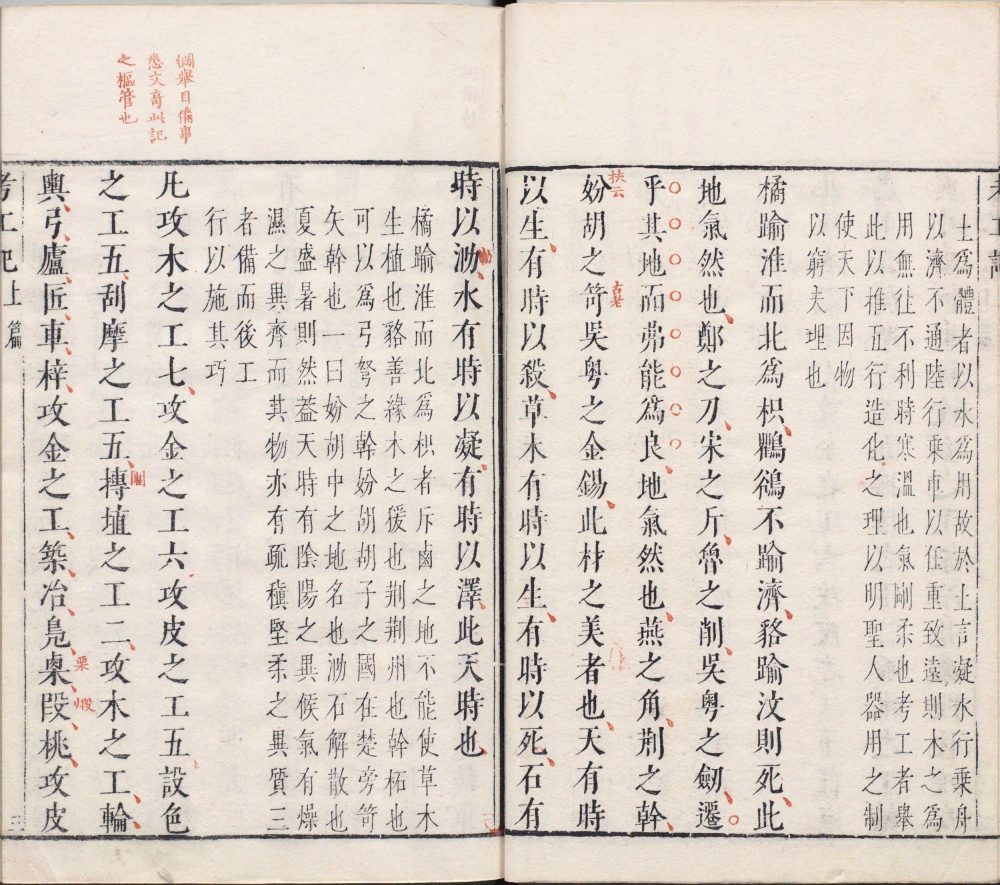 土爲體者以水爲用故於土言凝水行乘舟
以濟不通陸行乘車以任重致遠則木之爲
用無往不利時寒溫也氣剛柔也考工者舉
此以推五行造化之理以明聖人器用之制
使天下因物
以窮夫理也
橘踰淮而北爲枳鸜鵒不踰濟貉踰汶則死此
地氣然也鄭之刀宋之斤魯之削吳粤之劒遷
乎其地而弗能爲良地氣然也燕之角荆之幹
扶云
妢胡之笴吳粤之金錫此材之美者也天有時
古老
以生有時以殺草木有時以生有時以死石有
時以泐水有時以凝有時以澤此天時也
橘踰淮而北爲枳者斥鹵之地不能使草木
生植也貉善緣木之猨也荆荆州也幹柘也
可以爲弓弩之幹妢胡胡子之國在楚旁笴
矢幹也一曰妢胡中之地名也泐石解散也
夏盛暑則然葢天時有陰陽之異候氣有燥
濕之異齊而其物亦有疏稹堅柔之異質三
者備而後工
行以施其巧
綱舉目備事
悉文奇此記
之樞管也
凡攻木之工七攻金之工六攻皮之工五設色
之工五刮摩之工五摶埴之工二攻木之工輪
團
輿弓廬匠車梓攻金之工築冶鳧㮚段桃攻皮
栗
煅
考工記上
篇
三